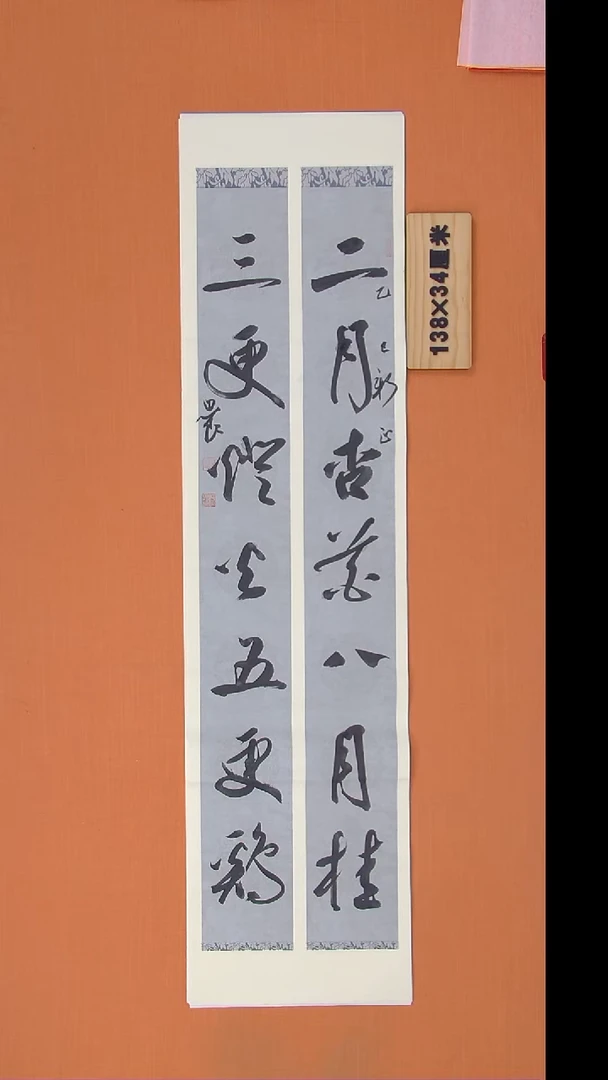 二月杏花八月桂
乙巳新正
三更燈火五更鷄
138×34厘米